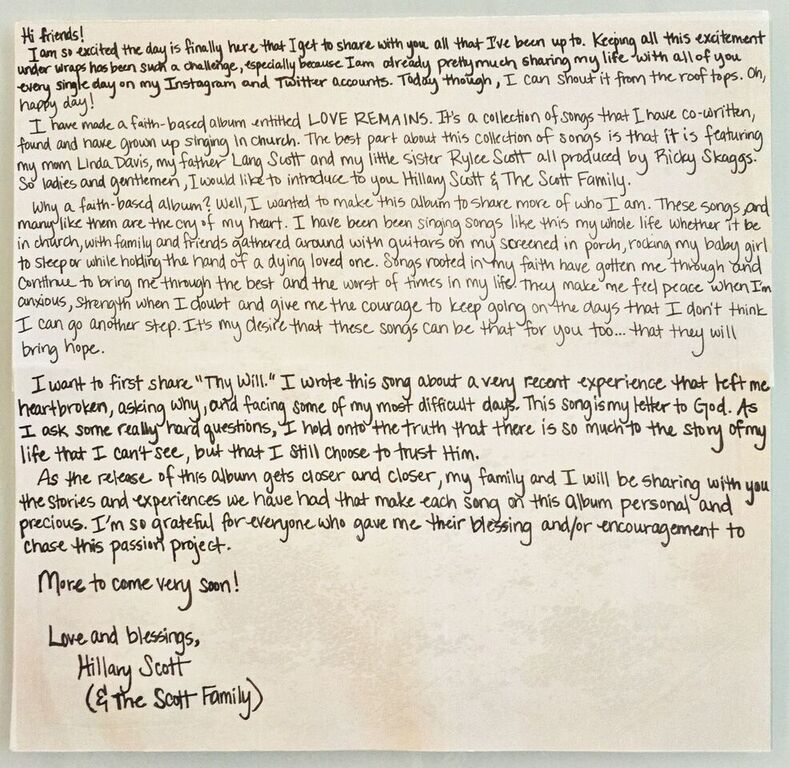 Hi friends!
I am so excited the day is finally here that I get to share with you all that I've been up to. Keeping all this excitement
under wraps has been such a challenge, especially because I am already pretty much sharing my life with all of you
every single day on my Instagram and Twitter accounts. Today though, I can shout it from the roof tops. Oh,
happy day!
I have made a faith-based album entitled LOVE REMAINS. It's a collection of songs that I have co-written,
found and have grown up singing in church. The best part about this collection of songs is that it is featuring
my mom Linda Davis, my father Lang Scott and my little sister Rylee Scott all produced by Ricky Skaggs.
So ladies and gentlemen, I would like to introduce to you Hillary Scott & The Scott Family.
Why a faith-based album? Well, I wanted to make this album to share more of who I am. These songs, and
many like them are the cry of my heart. I have been been singing songs like this my whole life whether it be
in church, with family and friends gathered around with guitars on my screened in porch, rocking my baby girl
to sleep or while holding the hand of a dying loved one. Songs rooted in my faith have gotten me through and
continue to bring me through the best and the worst of times in my life. They make me feel peace when I'm
anxious, strength when I doubt and give me the courage to keep going on the days that I don't think
I can go another step. It's my desire that these songs can be that for you too... that they will
bring hope.
I want to first share "Thy Will." I wrote this song about a very recent experience that left me
heartbroken, asking why, and facing some of my most difficult days. This song is my letter to God. As
I ask some really hard questions, I hold onto the truth that there is so much to the story of my
life that I can't see, but that I still choose to trust Him.
As the release of this album gets closer and closer, my family and I will be sharing with you
the stories and experiences we have had that make each song on this album personal and
precious. I'm so grateful for everyone who gave me their blessing and/or encouragement to
chase this passion project.
More to come very soon!
Love and blessings,
Hillary Scott
(& The Scott Family)